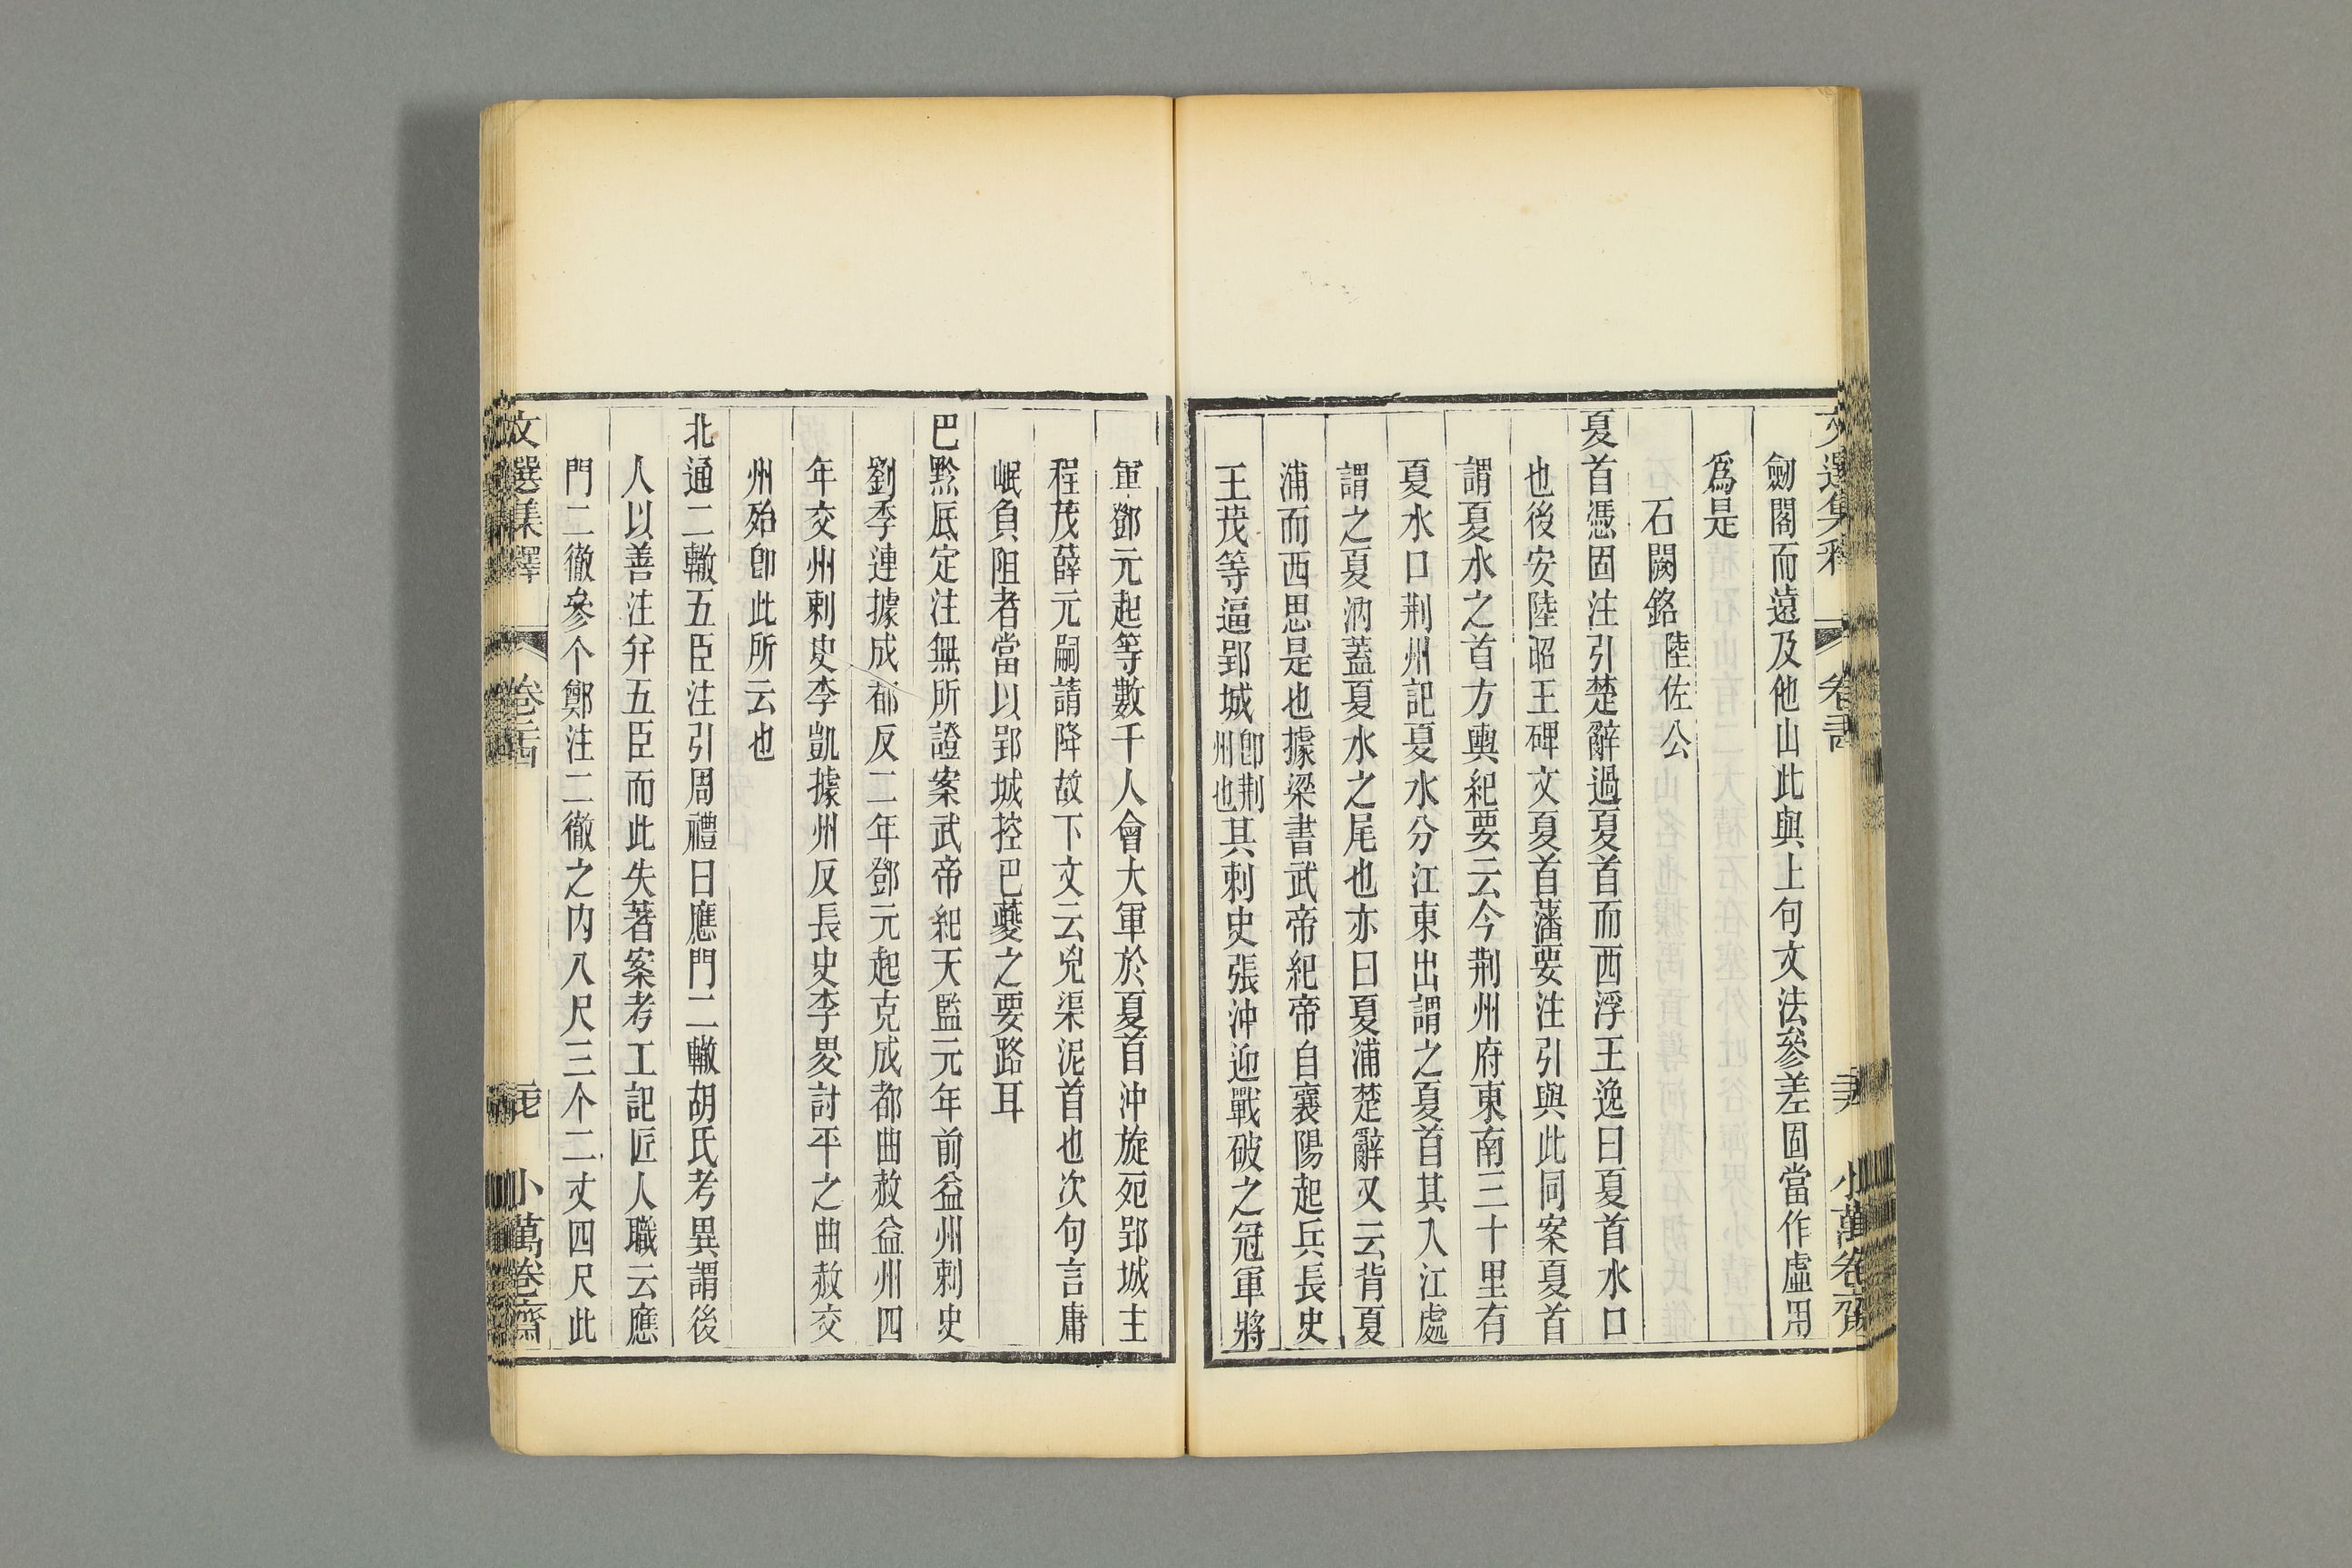 劒閣而遠及他山此與上句文法參差固當作虛用
爲是
石闕銘陸佐公
夏首憑固注引楚辭過夏首而西浮王逸曰夏首水口
也後安陸昭王碑文夏首藩要注引與此同案夏首
謂夏水之首方輿紀要云今荆州府東南三十里有
夏水口荆州記夏水分江東出謂之夏首其入江處
謂之夏汭蓋夏水之尾也亦曰夏浦楚辭又云背夏
浦而西思是也據梁書武帝紀帝自襄陽起兵長史
王茂等逼郢城卽荆州也其刺史張沖迎戰破之冠軍將
軍鄧元起等數千人會大軍於夏首沖旋死郢城主
程茂薛元嗣請降故下文云兇渠泥首也次句言庸
岷負阻者當以郢城控巴夔之要路耳
巴黔底定注無所證案武帝紀天監元年前益州刺史
劉季連據成都反二年鄧元起克成都曲赦益州四
年交州刺史李凱據州反長史李畟討平之曲赦交
州殆卽此所云也
北通二轍五臣注引周禮曰應門二轍胡氏考異謂後
人以善注幷五臣而此失著案考工記匠人職云應
門二徹參个鄭注二徹之内八尺三个二丈四尺此
文選集釋
卷二十四
小萬卷齋